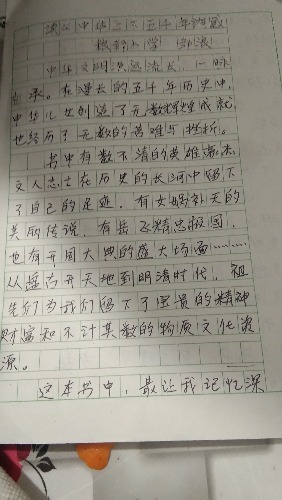 读《中华上下五千年》有感
小学
中华文明源远流长,一脉
相承。在漫长的五千年历史中,
中华儿女创造了无数辉煌成就,
也经历了无数的苦难与挫折。
书中有数不清的英雄豪杰、
文人志士在历史的长河中留下
了自己的足迹。有女娲补天的
美丽传说,有岳飞精忠报国,
也有开国大典的盛大场面……
从盘古开天地到明清时代,祖
先们为我们留下了宝贵的精神
财富和不计其数的物质文化资
源。
这本书中,最让我记忆深